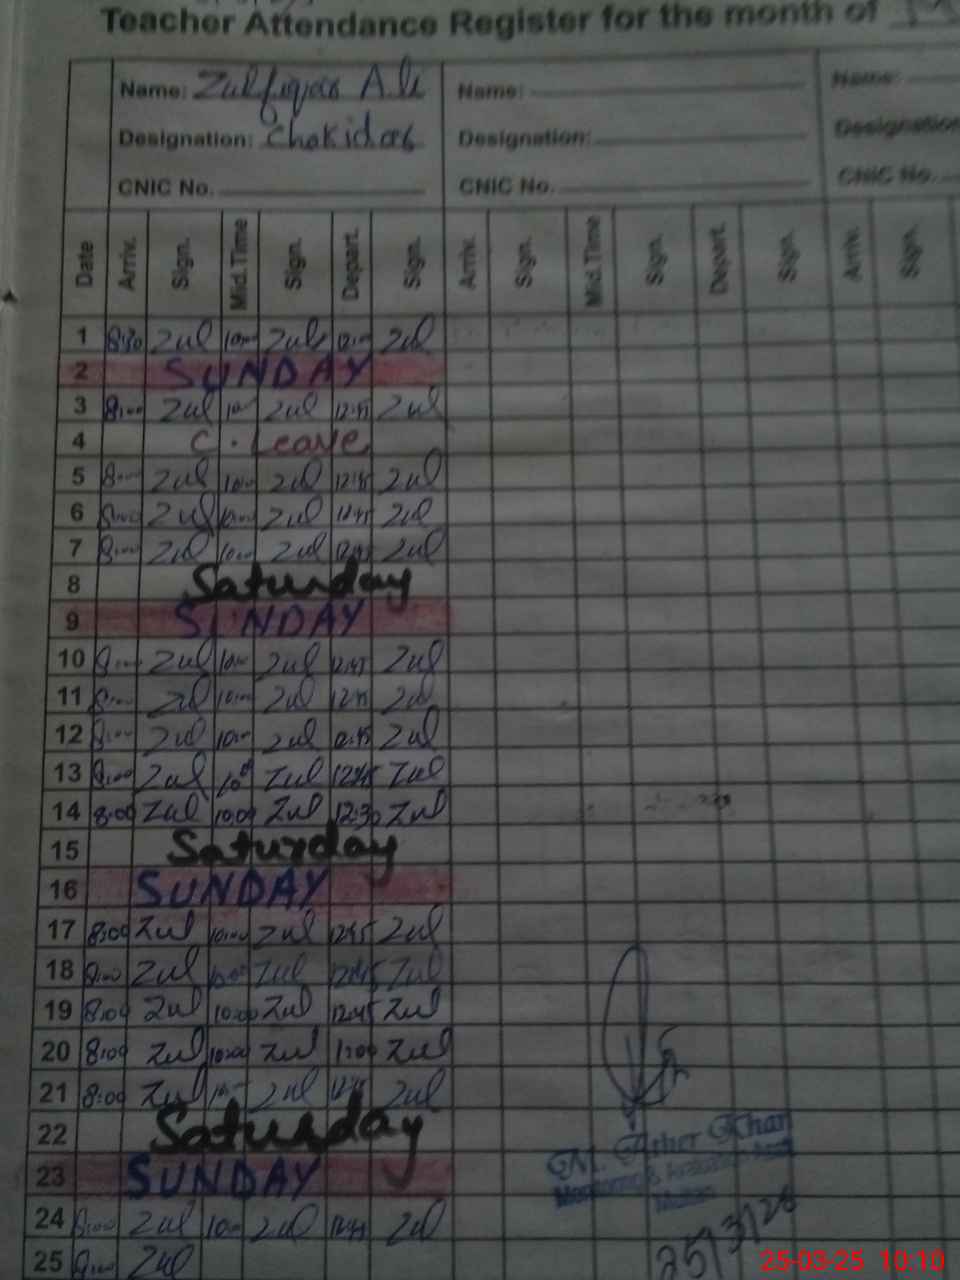 Teacher Attendance Register for the month of
Name: Zulfiqar Ali Name: Name:
Designation: Chokidar Designation: Designation
CNIC No. CNIC No. CNIC No.
Date Arriv. Sign. Mid.Time Sign. Depart. Sign. Arriv. Sign. Mid.Time Sign. Depart. Sign. Arriv. Sign.
1 8:30 Zul Zul Zul
2 SUNDAY
3 8:00 Zul Zul 12:45 Zul
4 C. Leave
5 8:00 Zul 10:00 Zul 12:45 Zul
6 8:00 Zul 10:00 Zul 12:45 Zul
7 8:00 Zul 10:00 Zul 12:45 Zul
8 Saturday
9 SUNDAY
10 8:00 Zul 10:00 Zul 12:45 Zul
11 8:00 Zul 10:00 Zul 12:45 Zul
12 8:00 Zul 10:00 Zul 12:45 Zul
13 8:00 Zul 10 Zul 12:45 Zul
14 8:00 Zul 10:00 Zul 12:30 Zul
15 Saturday
16 SUNDAY
17 8:00 Zul 10:00 Zul 12:45 Zul
18 8:00 Zul 10:00 Zul 12:45 Zul
19 8:00 Zul 10:00 Zul 12:45 Zul
20 8:00 Zul 10:00 Zul 1:00 Zul
21 8:00 Zul Zul 12:45 Zul
22 Saturday
23 SUNDAY
24 8:00 Zul 10:00 Zul 12:45 Zul
25 8:00 Zul
M. Ather Khan
Monitoring & Evaluation
Multan
25/3/25
25-03-25 10:10